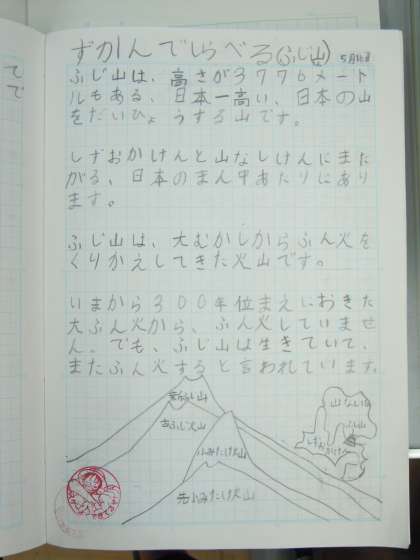 ずかんでしらべる(ふじ山)
ふじ山は、高さが3776メート
ルもある、日本一高い、日本の山
をだいひょうする山です。
しずおかけんと山なしけんにまた
がる、日本のまん中あたりにあり
ます。
ふじ山は、大むかしからふん火を
くりかえしてきた火山です。
いまから300年位まえにおきた
大ふん火から、ふん火していませ
ん。でも、ふじ山は生きていて、
またふん火すると言われています。
ふじ山
古ふじ火山
小みたけ火山
先小みたけ火山
山なし
ふじ山
しずおかけん
て
で